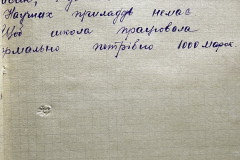 Научних приладдів немає
Щоб школа працювала
нормально потрібно 1000 марок.